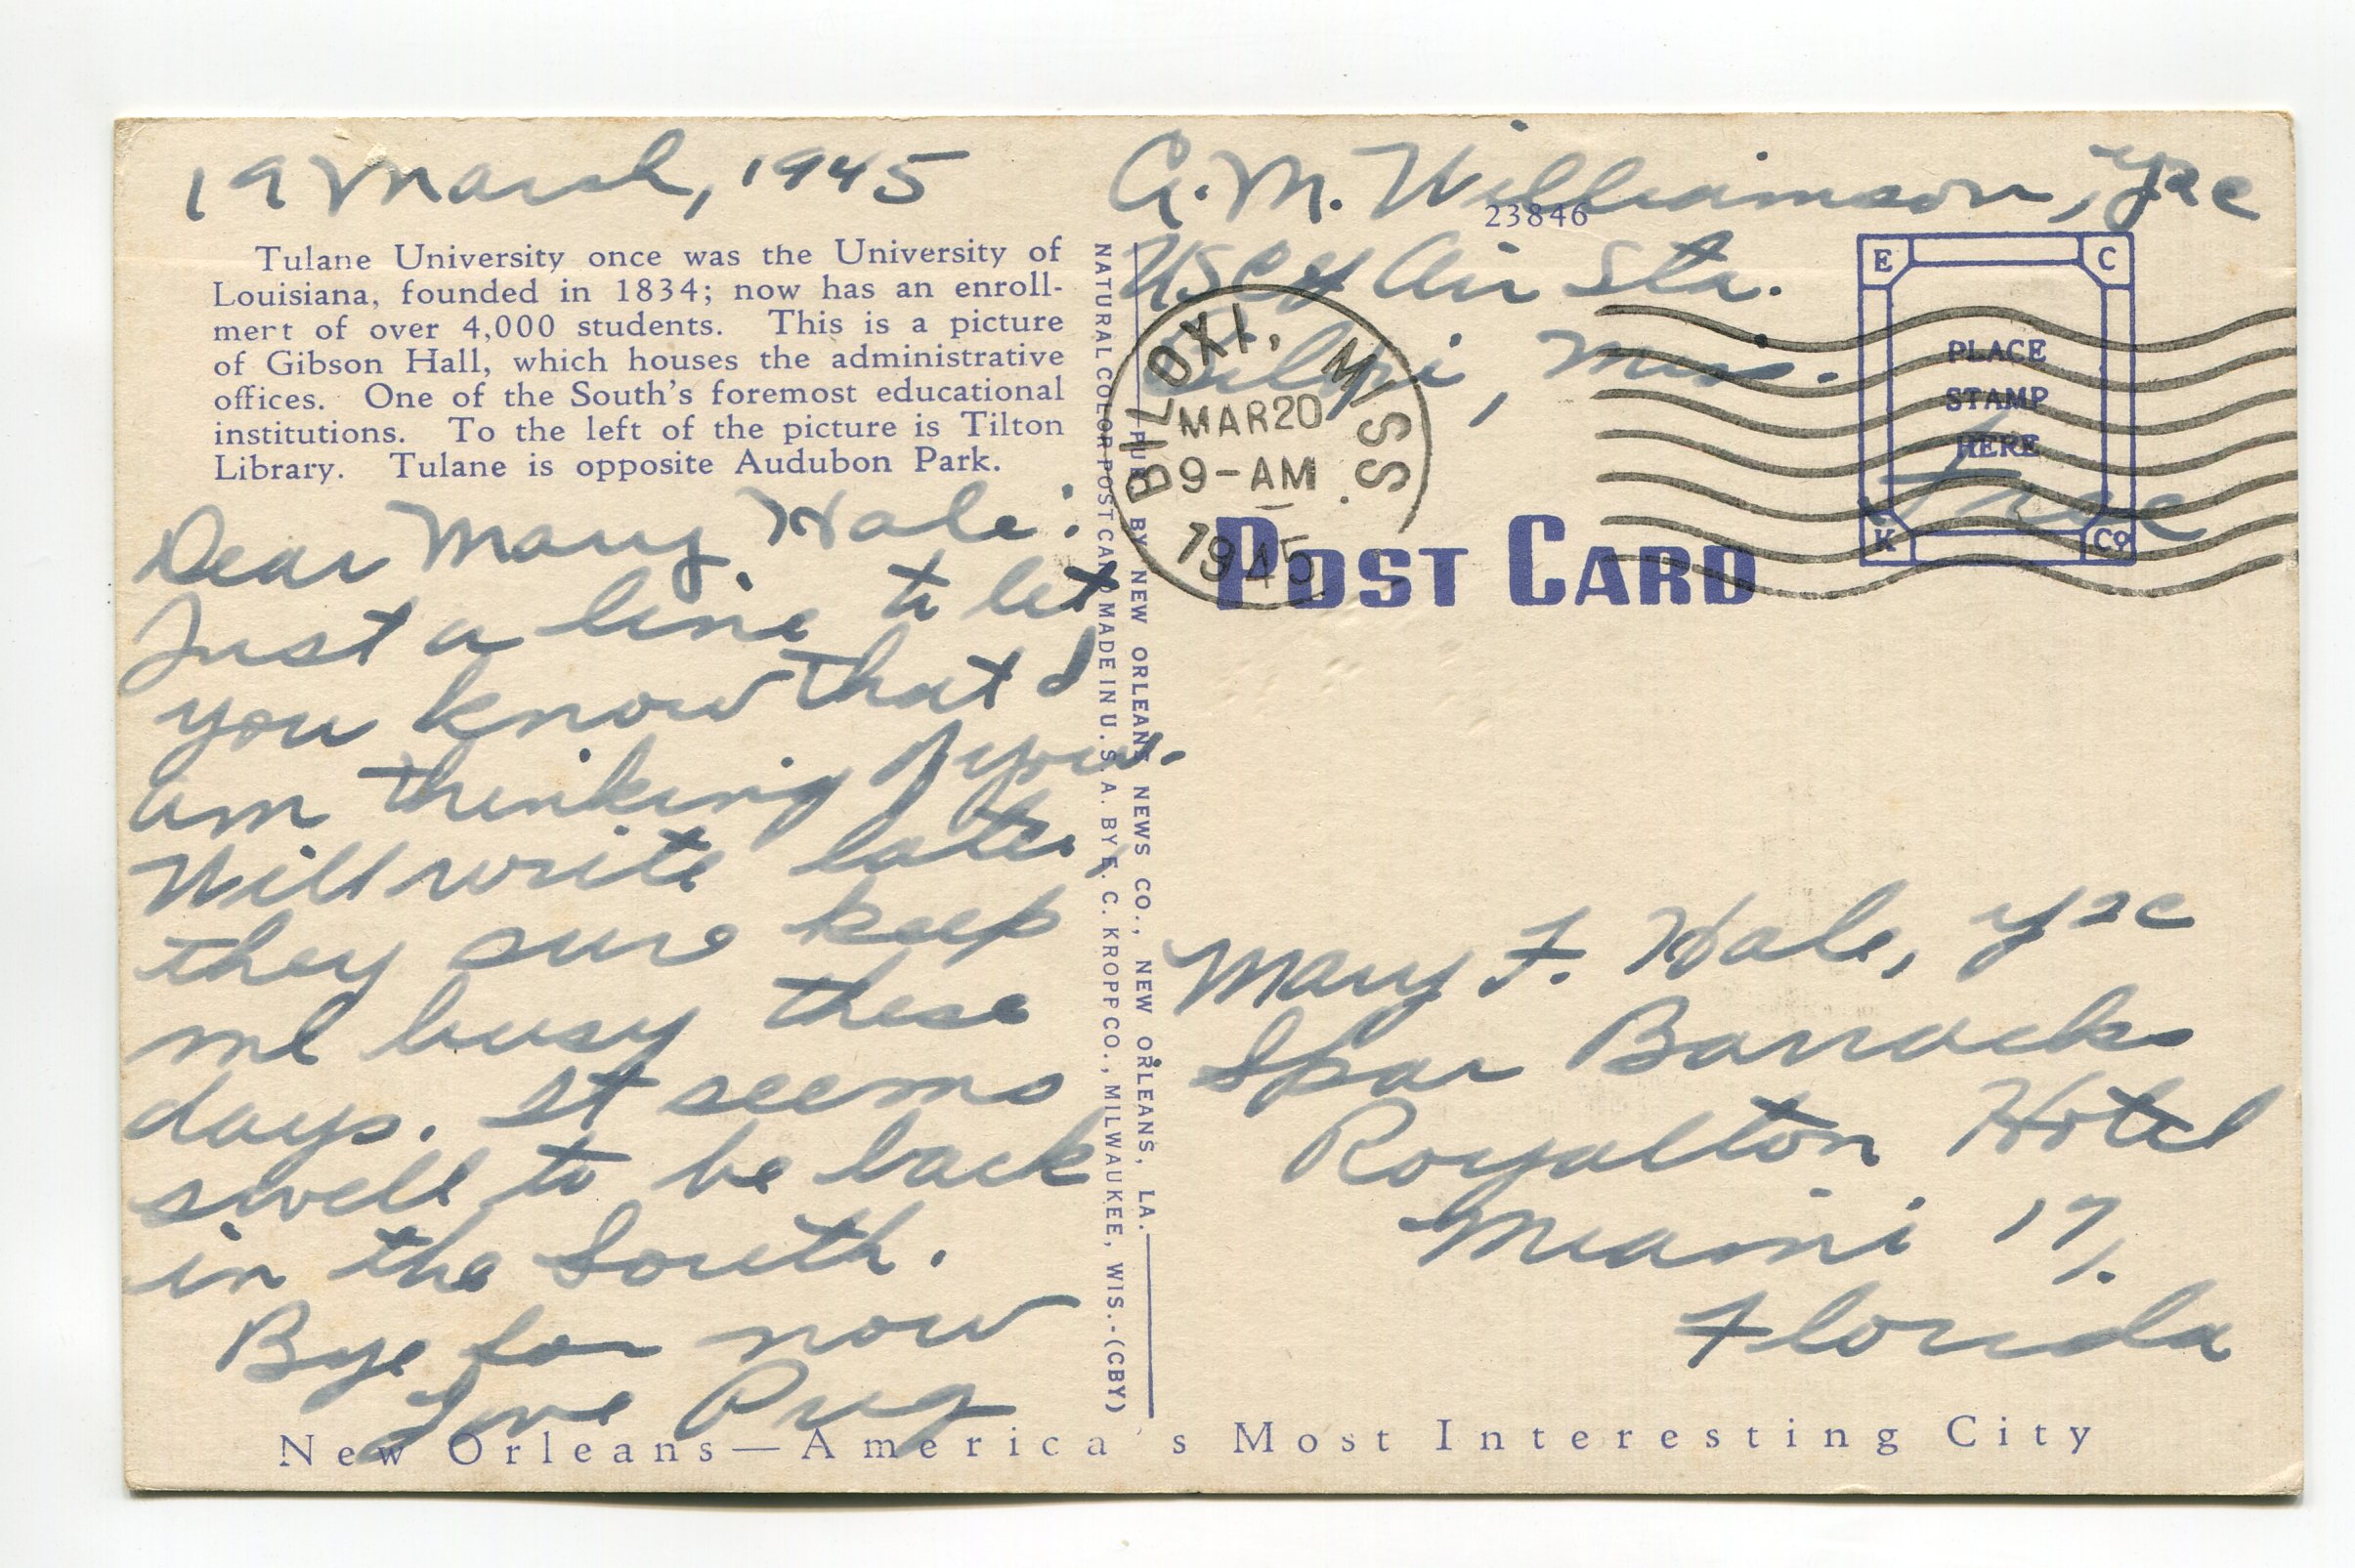 19 March, 1945
Tulane University once was the University of
Louisiana, founded in 1834; now has an enroll-
mert of over 4,000 students. This is a picture
of Gibson Hall, which houses the administrative
offices. One of the South's foremost educational
institutions. To the left of the picture is Tilton
Library. Tulane is opposite Audubon Park.
Dear Mary Hale:
Just a line to let
you know that I
am thinking of you.
Will write later,
they sure keep
me busy these
days. It seems
swell to be back
in the South.
Bye for now
Love Pug
NATURAL COLOR POST CARD MADE IN U.S.A. BY E. C. KROPP CO., MILWAUKEE, WIS.-(CBY)
PUB. BY NEW ORLEANS NEWS CO., NEW ORLEANS, LA.
A. M. Williamson, Y2c
23846
USCG Air Sta.
Biloxi, Miss.
BILOXI, MISS.
MAR 20
9-AM
1945
E C
PLACE
STAMP
HERE
K Co
Free
POST CARD
Mary F. Hale, Y2c
Spar Barracks
Royalton Hotel
Miami 17,
Florida
New Orleans—America's Most Interesting City